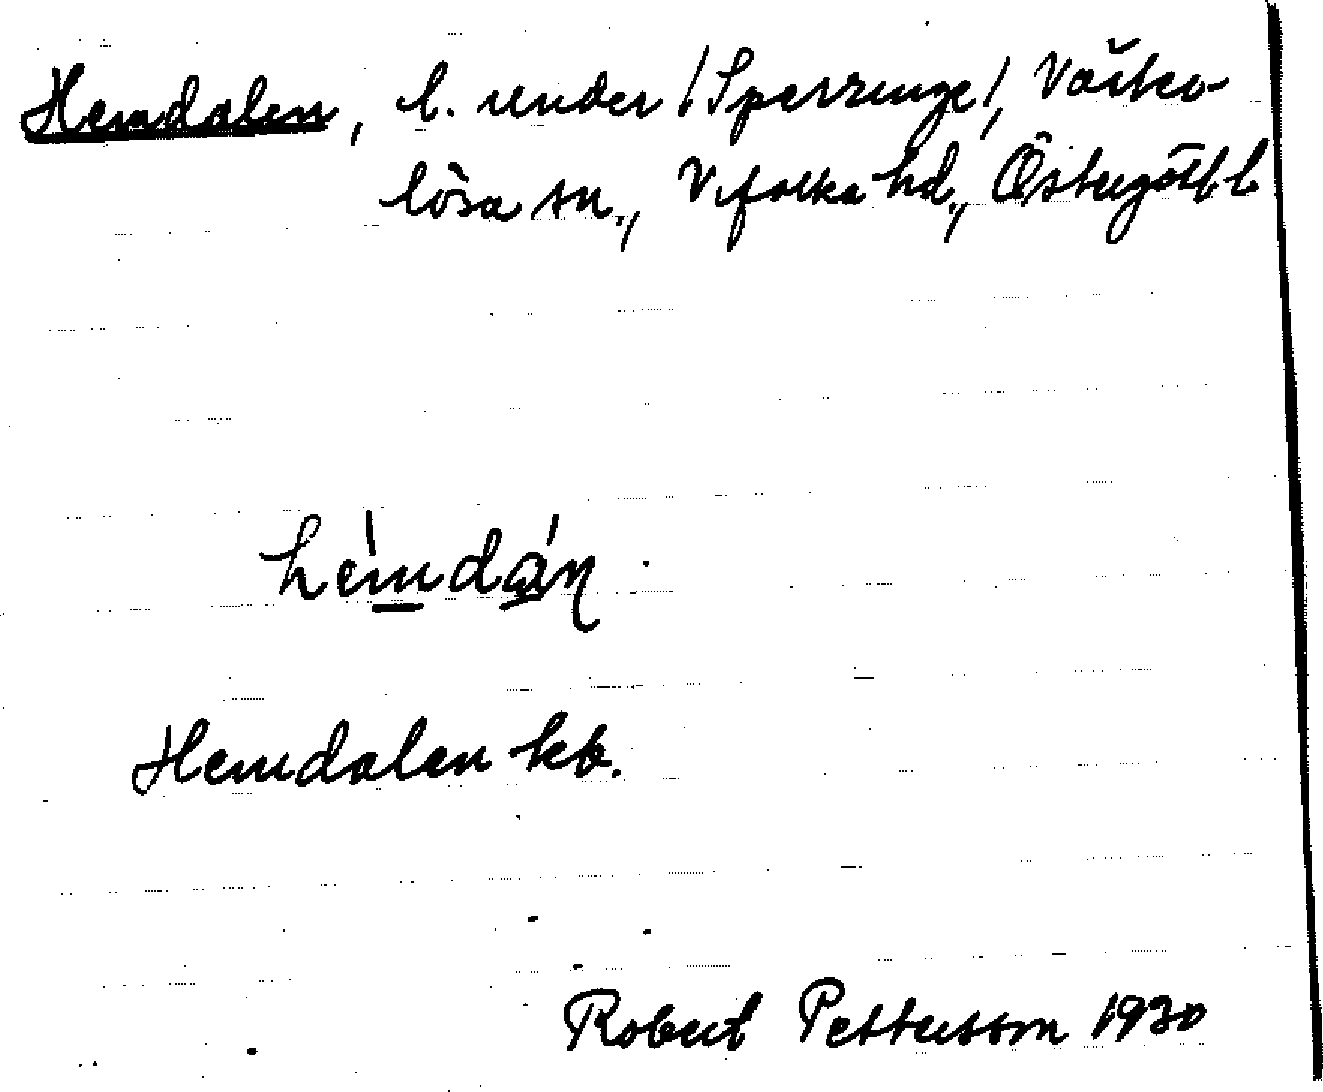 Hemdalen, l. under /Sperringe/, Väder-
lösa sn., Vifolka hd., Östergötl. l
hèmdán
Hemdalen kb.
Robert Pettersson 1930